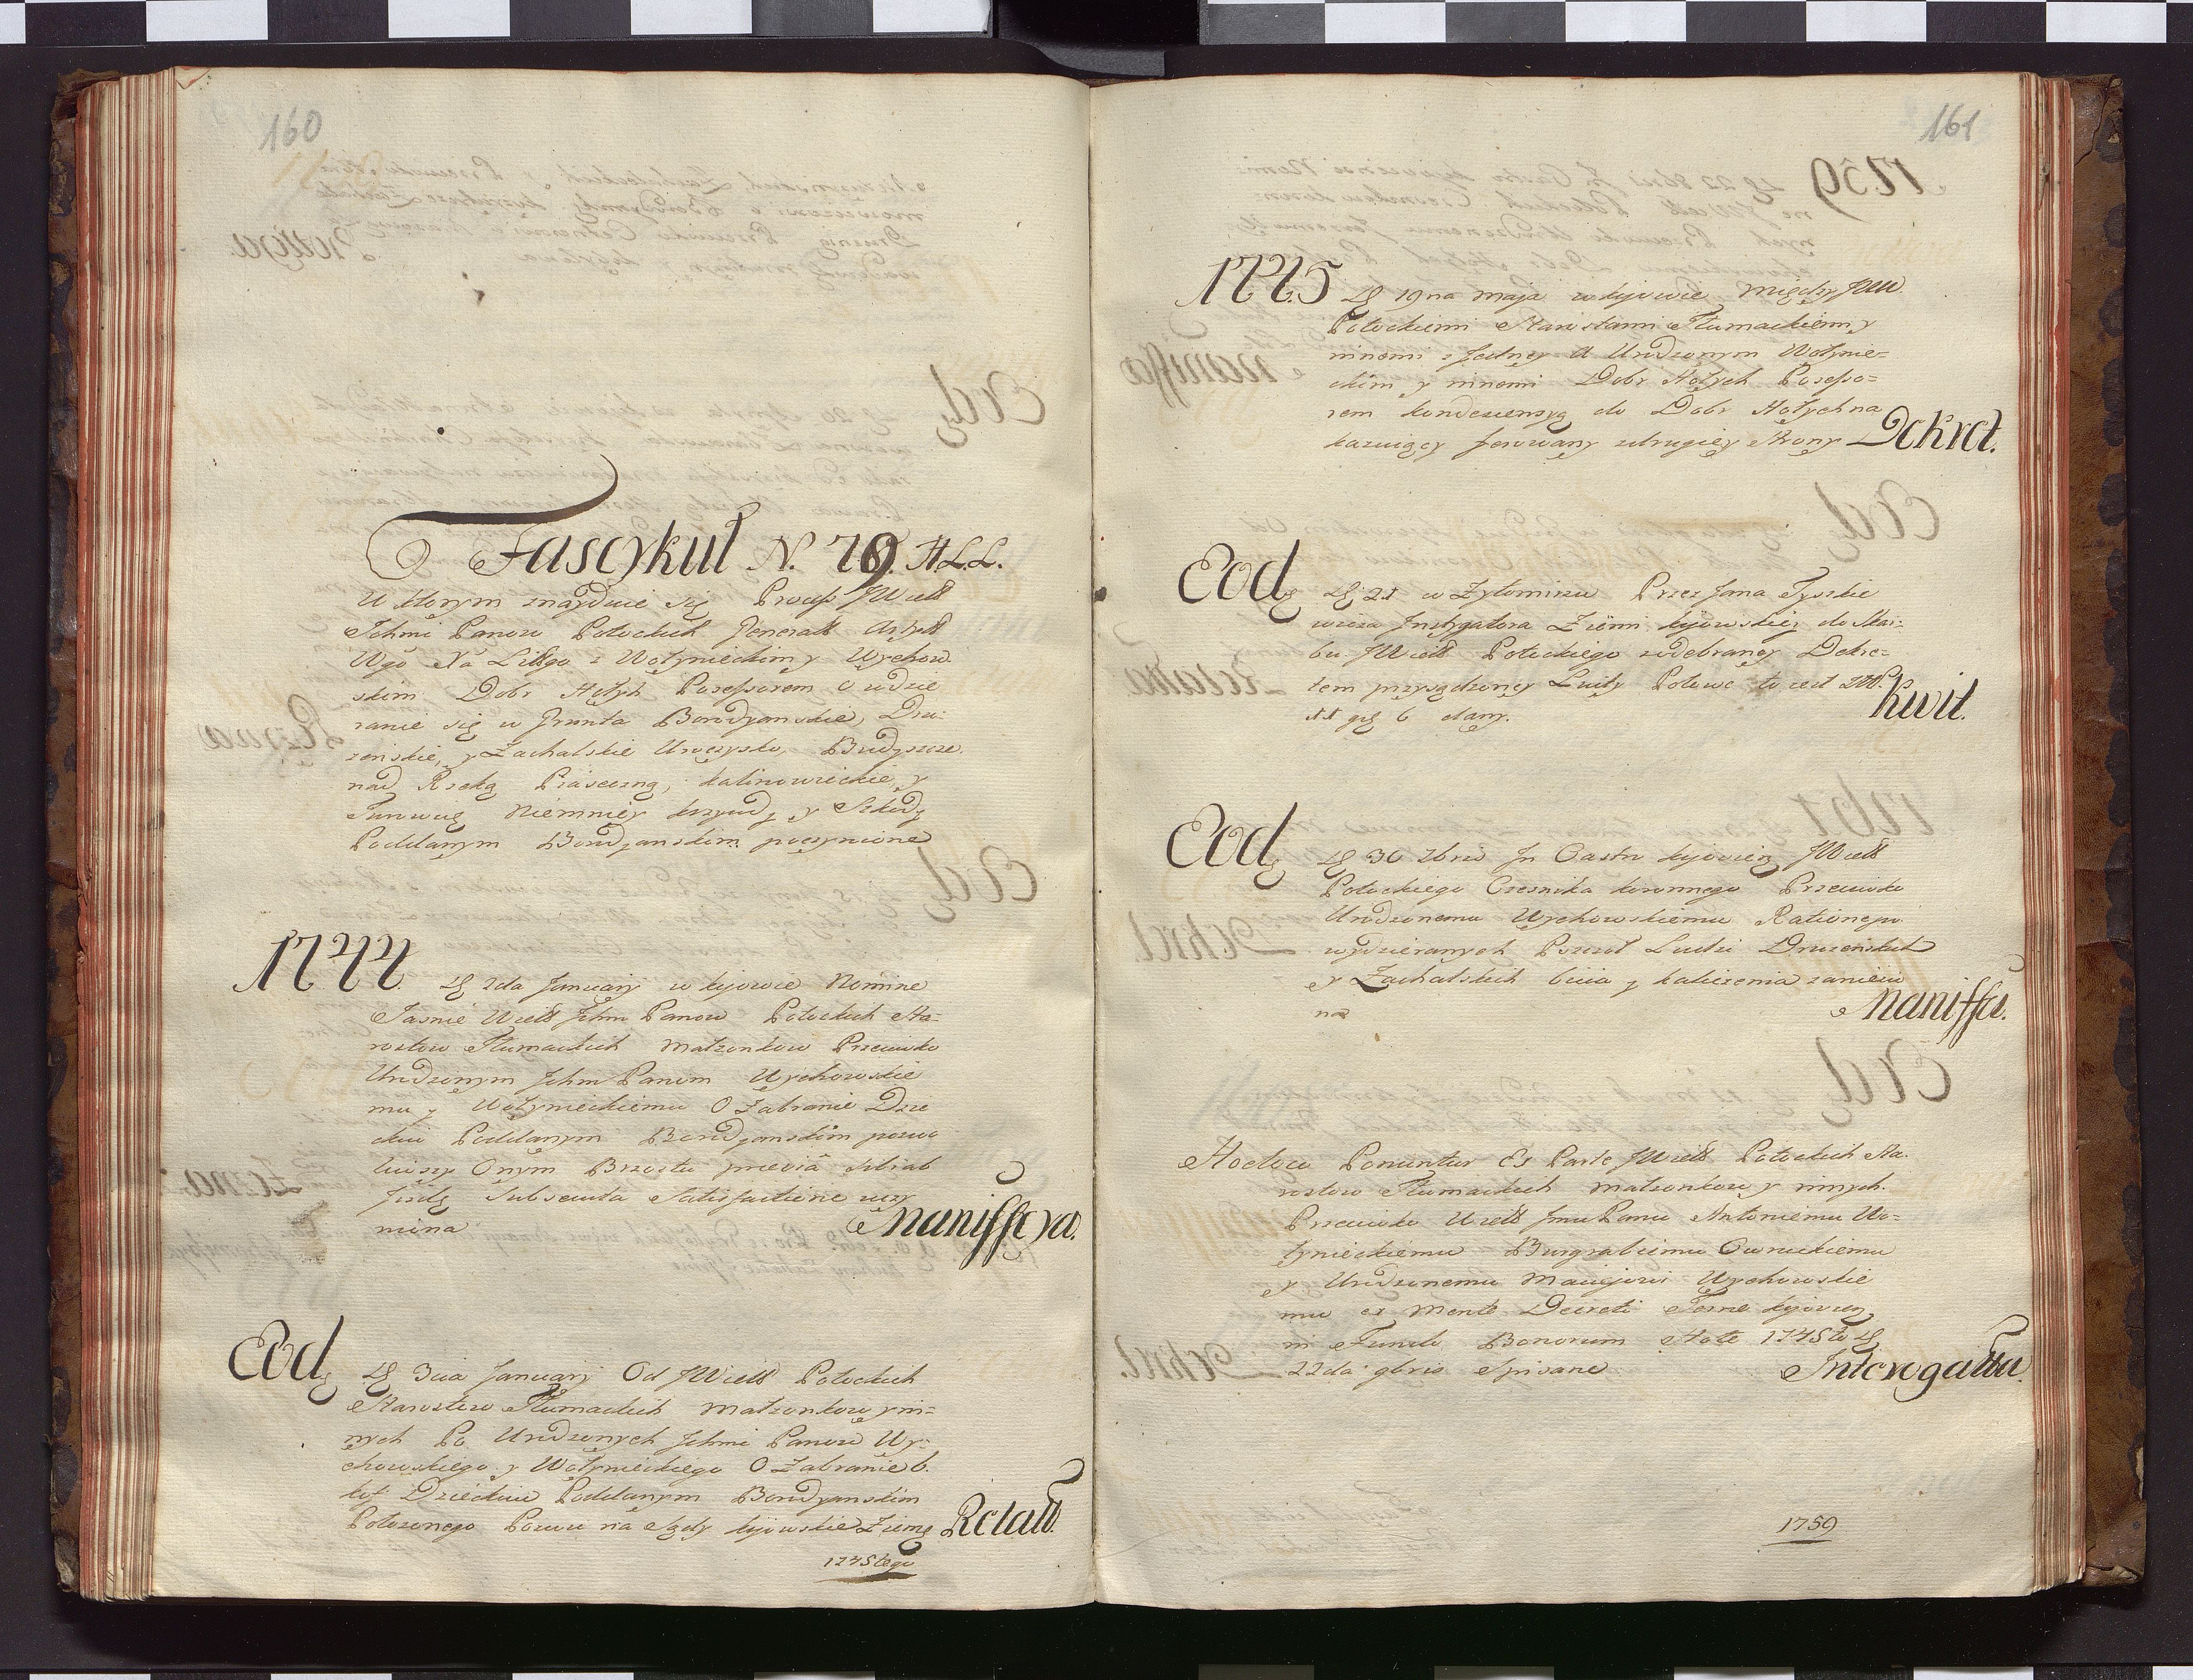 160
Fascykuł N. 79. H.L.L.
W ktorym znayduie się Process JWielł
Ichmć Panow Potockich Generałł Artyłł
Wgo Xa Littgo z Wołynieckim y Wychow
skim Dobr Hołych Possessorem o wdzie
ranie się w Grunta Bondyanskie, Dru:
zenskie, y Zachalskie Uroczysko, Budyszcze
nad Rzeką Piaseczną, kalinowieckie, y
Niemniey krzywdy, y Szkody
Poddanym Bondyanskim poczynione
1744. D 2da January w kijowie Nomine
Jasnie Wielł Ichm Panow Potockich Sta:
rostow Tłumackich Małzonkow Przeciwko
Urodzonym Ichm Panom Wychowskie
mu y Wołynieckiemu O Zabranie Dzie
Poddanym Bondyanskim
Onym
Satisfactione
mina Maniffcya.
Eod D 3cia January Od JWielł Potockich
Starostow Tłumackich Małzonkow y in=
nych Po Urodzonych Ichmć Panow Wy:
chowskiego y Wołynieckiego O Zabranie 6.
Poddanym Bondyanskim
Połozonego Pozwu na Sądy kijowskie Ziem Relatt.
1745tego
161
1745 D 19na Maja w kijowie Między JWW
Potockiemi Starostami Tłumackiemi y
innemi z Jedney A Urodzonym Wołynie=
ckim y innemi Dobr Hołych Possesso=
rem kondescensyą do Dobr Hołych na
kazuiący ferowany z drugiey Strony Dekret.
Eod D 21 w Zytomirzu Przez Jana Tyszkie
wicza Instygatora Ziemi kijowskiey do Skar:
bu JWielł Potockiego z odebraney Dekre=
tem przysądzoney Luity Połowe to iest
gg 6 dany. Kwit.
Eod D 30 Xbris In Castro kijovien JWielł
Potockiego Czesnika koronnego Przeciwko
Urodzonemu Wychowskiemu Ratione
wydzieranych Pszczoł Ludzi Druzenskich
y Zachalskich bicia y kaliczenia zaniesio
na Maniffa.
Ponuntur Ex Parte JWielł Potockich Sta:
rostow Tłumackich Małzonkow y innych
Przeciwko Wielł JmuPanu Antoniemu Wo=
łynieckiemu Burgrabiemu Owruckiemu
y Urodzonemu Maciejowi Wychowskie
mu ex Mente Decreti Terrae kijovien
in Fundo Bonorum Hołe 1745to D
22da 9bris Spisane Interogatta.
1759